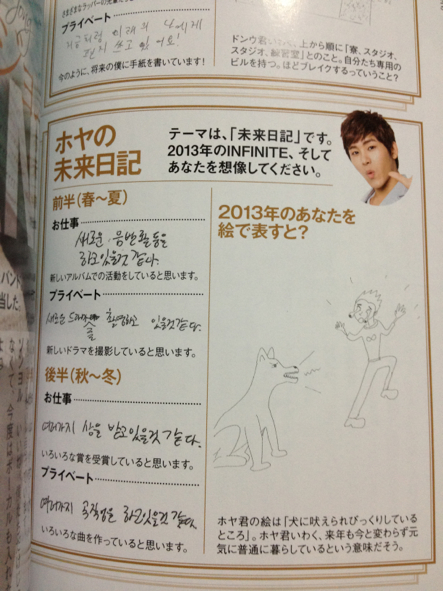 プライベート
今のように、将来の僕に手紙を書いています!
上から順に「寮、スタジオ、
スタジオ、練習室」とのこと。自分たち専用の
ビルを持つ。ほどブレイクするっていうこと?
ホヤの
未来日記
テーマは、「未来日記」です。
2013年のINFINITE、そして
あなたを想像してください。
前半(春〜夏)
お仕事
새로운 음반활동을
하고있을것 같다.
新しいアルバムでの活動をしていると思います。
プライベート
새로운 촬영하고 있을것 같다.
新しいドラマを撮影していると思います。
後半(秋〜冬)
お仕事
여러가지 상을 받고있을것 같다.
いろいろな賞を受賞していると思います。
プライベート
여러가지 곡작업을 하고있을것 같다.
いろいろな曲を作っていると思います。
2013年のあなたを
絵で表すと?
ホヤ君の絵は「犬に吠えられびっくりしている
ところ」。ホヤ君いわく、来年も今と変わらず元
気に普通に暮らしているという意味だそう。